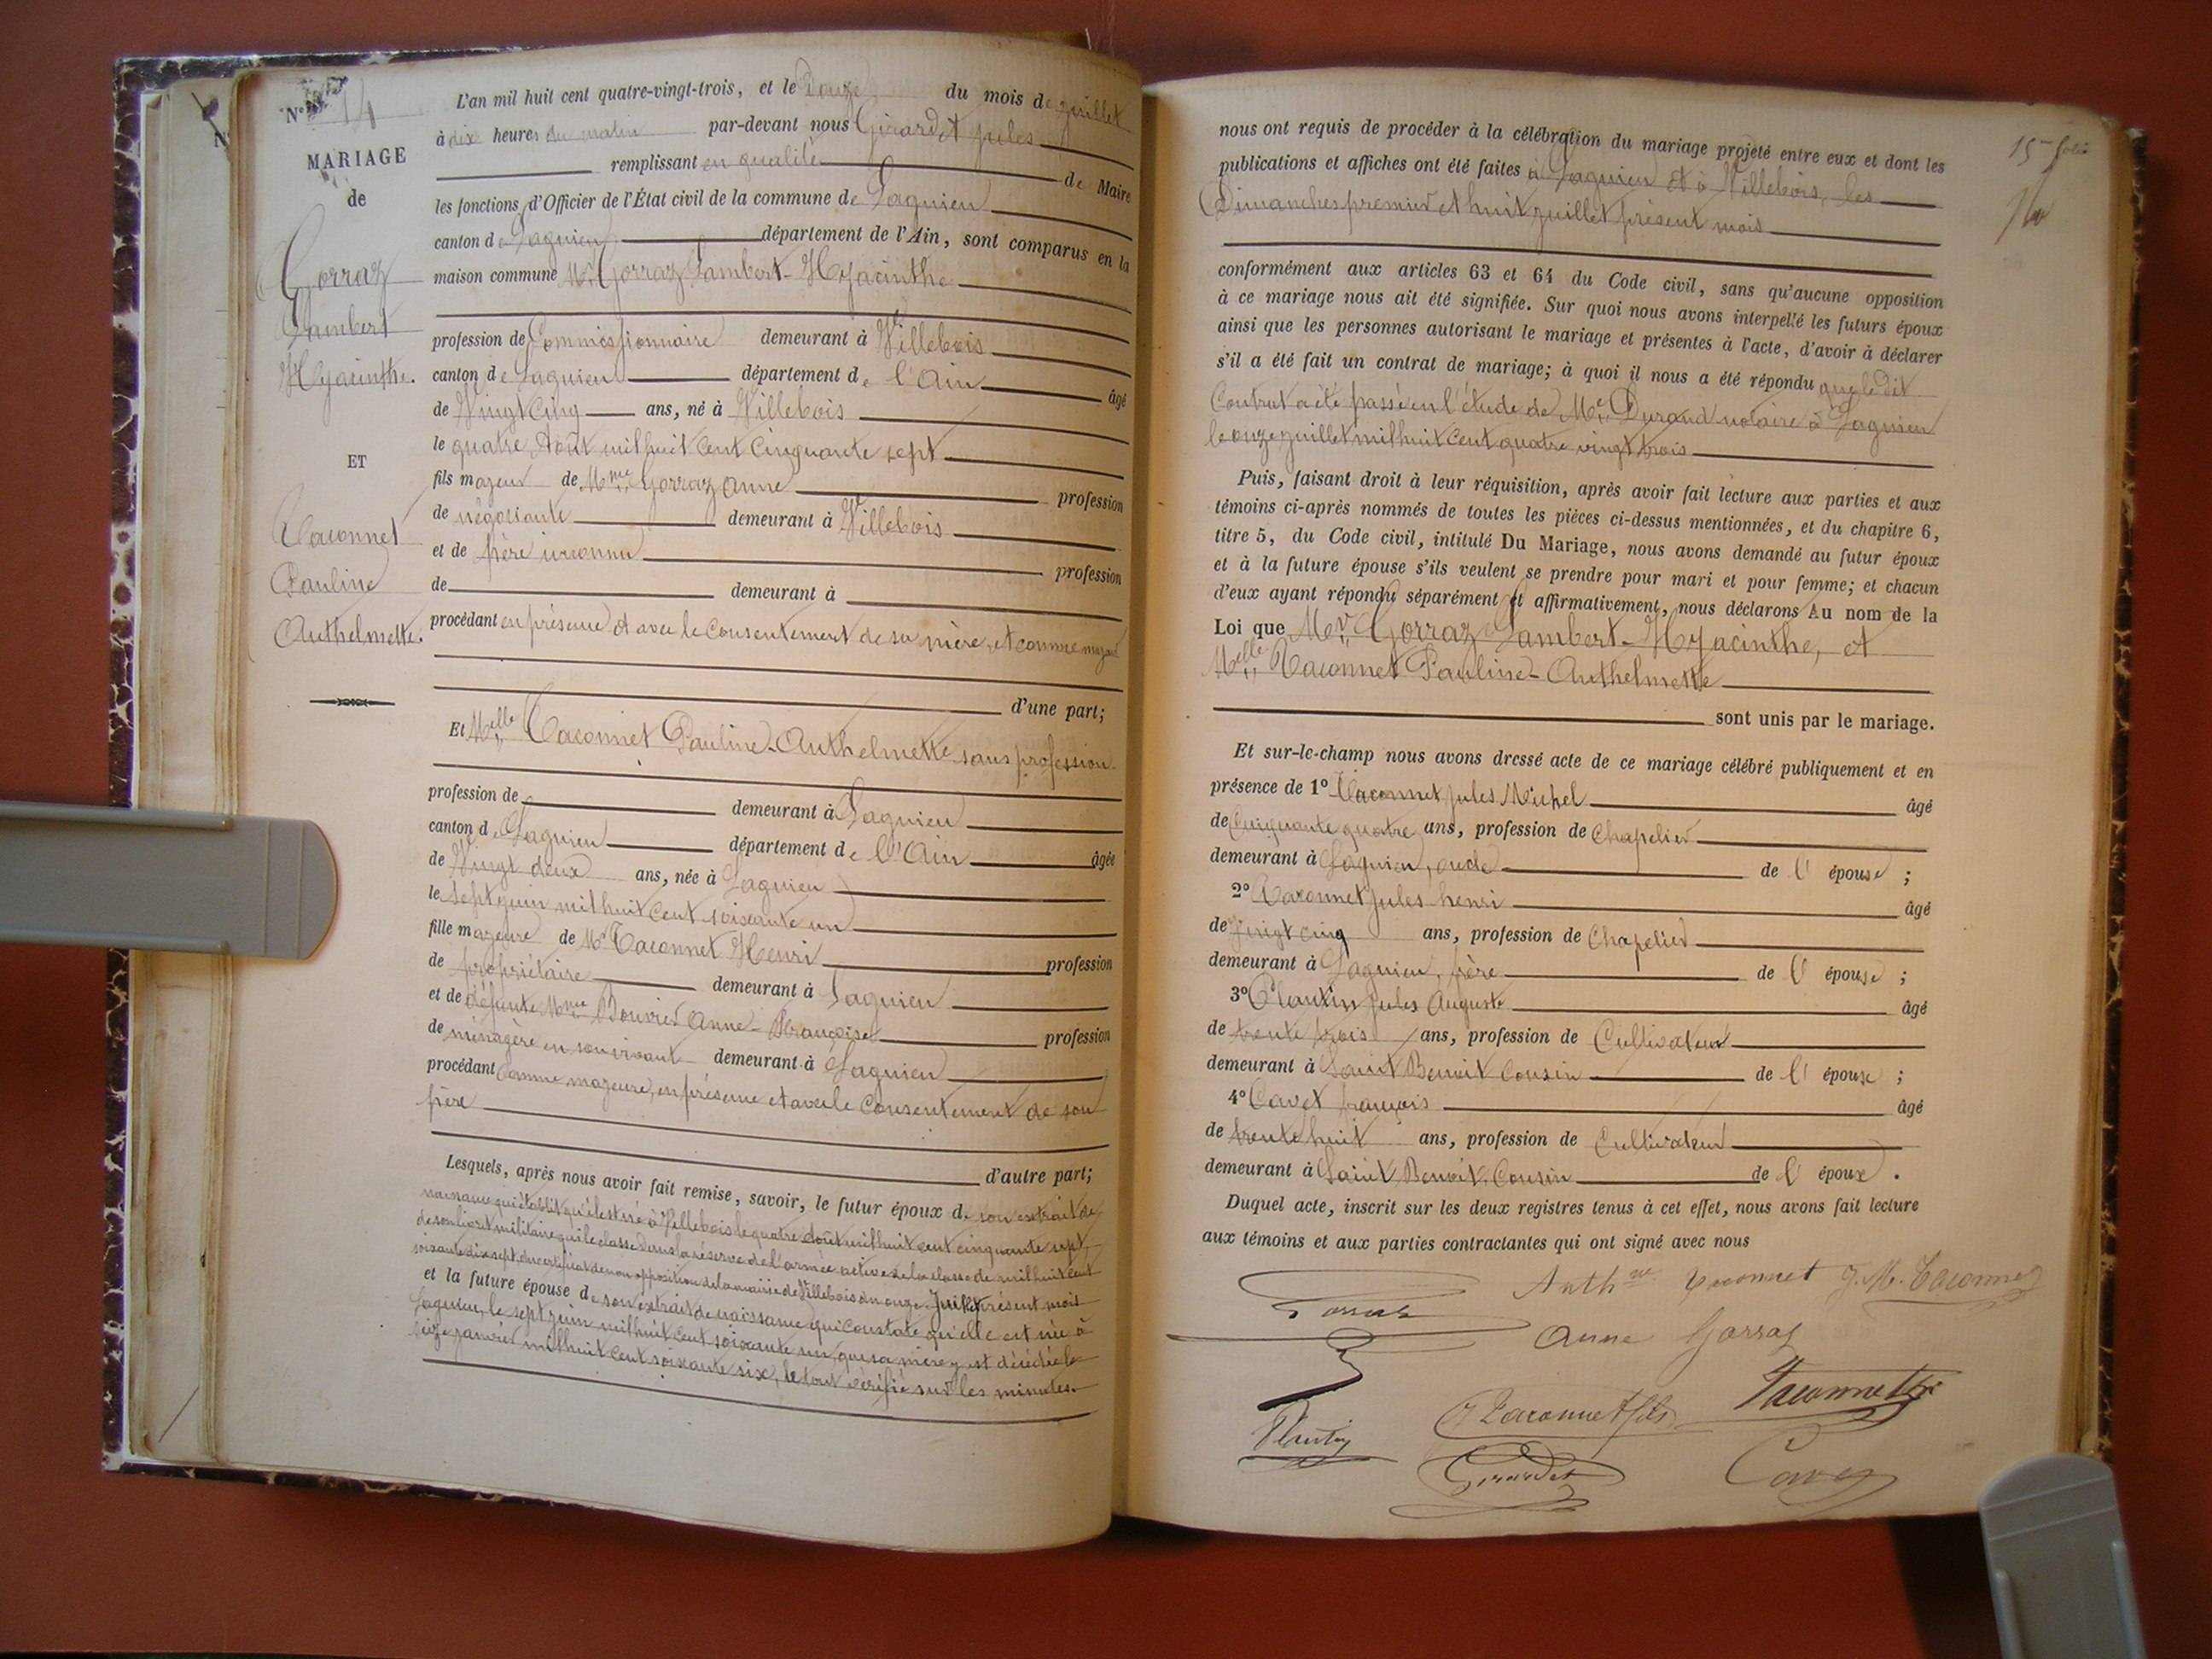 N° 14
MARIAGE
de
Gorraz
Lambert
Hyacinthe.
ET
Taconnet
Pauline
Anthelmette.
L'an mil huit cent quatre-vingt-trois, et le Douze du mois de juillet
à dix heures du matin par-devant nous Girardet jules
remplissant en qualité de Maire
les fonctions d'Officier de l'État civil de la commune de Lagnieu
canton de Lagnieu département de l'Ain, sont comparus en la
maison commune Mr. Gorraz Lambert-Hyacinthe
profession de Commissionnaire demeurant à Villebois
canton de Lagnieu département de l'Ain âgé
de Vingt Cinq ans, né à Villebois
le quatre Août mil huit Cent Cinquante sept
fils majeur de Mme Gorraz Anne profession
de négociante demeurant à Villebois
et de père inconnu profession
de demeurant à
procédant en présence et avec le Consentement de sa mère, et comme majeur
d'une part;
Et Melle Taconnet Pauline-Anthelmette sans profession
profession de demeurant à Lagnieu
canton de Lagnieu département de l'Ain âgée
de Vingt deux ans, née à Lagnieu
le sept juin mil huit Cent soixante un
fille majeure de Mr Taconnet Henri profession
de propriétaire demeurant à Lagnieu
et de défunte Mme Bouvier Anne-Françoise profession
de ménagère en son vivant demeurant à Lagnieu
procédant Comme majeure, en présence et avec le Consentement de son
père
d'autre part;
Lesquels, après nous avoir fait remise, savoir, le futur époux de son extrait de
naissance qui établit qu'il est né à Villebois le quatre Août mil huit cent cinquante sept,
de son livret militaire qui le classe dans la réserve de l'armée active de la classe de mil huit cent
soixante dix sept, du certificat de non opposition de la mairie de Villebois du onze Juillet présent mois
et la future épouse de son extrait de naissance qui constate qu'elle est née à
Lagnieu, le sept juin mil huit cent soixante un, que sa mère y est décédée le
seize janvier mil huit cent soixante six, le tout vérifié sur les minutes.
15me folio
nous ont requis de procéder à la célébration du mariage projeté entre eux et dont les
publications et affiches ont été faites à Lagnieu et à Villebois, les
Dimanches premier et huit juillet présent mois
conformément aux articles 63 et 64 du Code civil, sans qu'aucune opposition
à ce mariage nous ait été signifiée. Sur quoi nous avons interpellé les futurs époux
ainsi que les personnes autorisant le mariage et présentes à l'acte, d'avoir à déclarer
s'il a été fait un contrat de mariage; à quoi il nous a été répondu que le dit
Contrat a été passé en l'étude de Me Durand notaire à Lagnieu
le onze juillet mil huit Cent quatre vingt trois
Puis, faisant droit à leur réquisition, après avoir fait lecture aux parties et aux
témoins ci-après nommés de toutes les pièces ci-dessus mentionnées, et du chapitre 6,
titre 5, du Code civil, intitulé Du Mariage, nous avons demandé au futur époux
et à la future épouse s'ils veulent se prendre pour mari et pour femme; et chacun
d'eux ayant répondu séparément et affirmativement, nous déclarons Au nom de la
Loi que Mr. Gorraz Lambert-Hyacinthe, et
Melle Taconnet Pauline-Anthelmette
sont unis par le mariage.
Et sur-le-champ nous avons dressé acte de ce mariage célébré publiquement et en
présence de 1° Taconnet jules Michel âgé
de Cinquante quatre ans, profession de Chapelier
demeurant à Lagnieu, oncle de l'épouse ;
2° Taconnet jules-henri âgé
de Vingt cinq ans, profession de Chapelier
demeurant à Lagnieu, frère de l'épouse ;
3° Plantin jules Auguste âgé
de trente trois ans, profession de Cultivateur
demeurant à Saint Benoit Cousin de l'épouse ;
4° Cavet françois âgé
de trente huit ans, profession de Cultivateur
demeurant à Saint Benoit, Cousin de l'époux .
Duquel acte, inscrit sur les deux registres tenus à cet effet, nous avons fait lecture
aux témoins et aux parties contractantes qui ont signé avec nous
Gorraz
Anth me Taconnet J. M. Taconnet
Anne Gorraz
Plantin
Taconnet fils
Taconnet
Girardet
Cavet